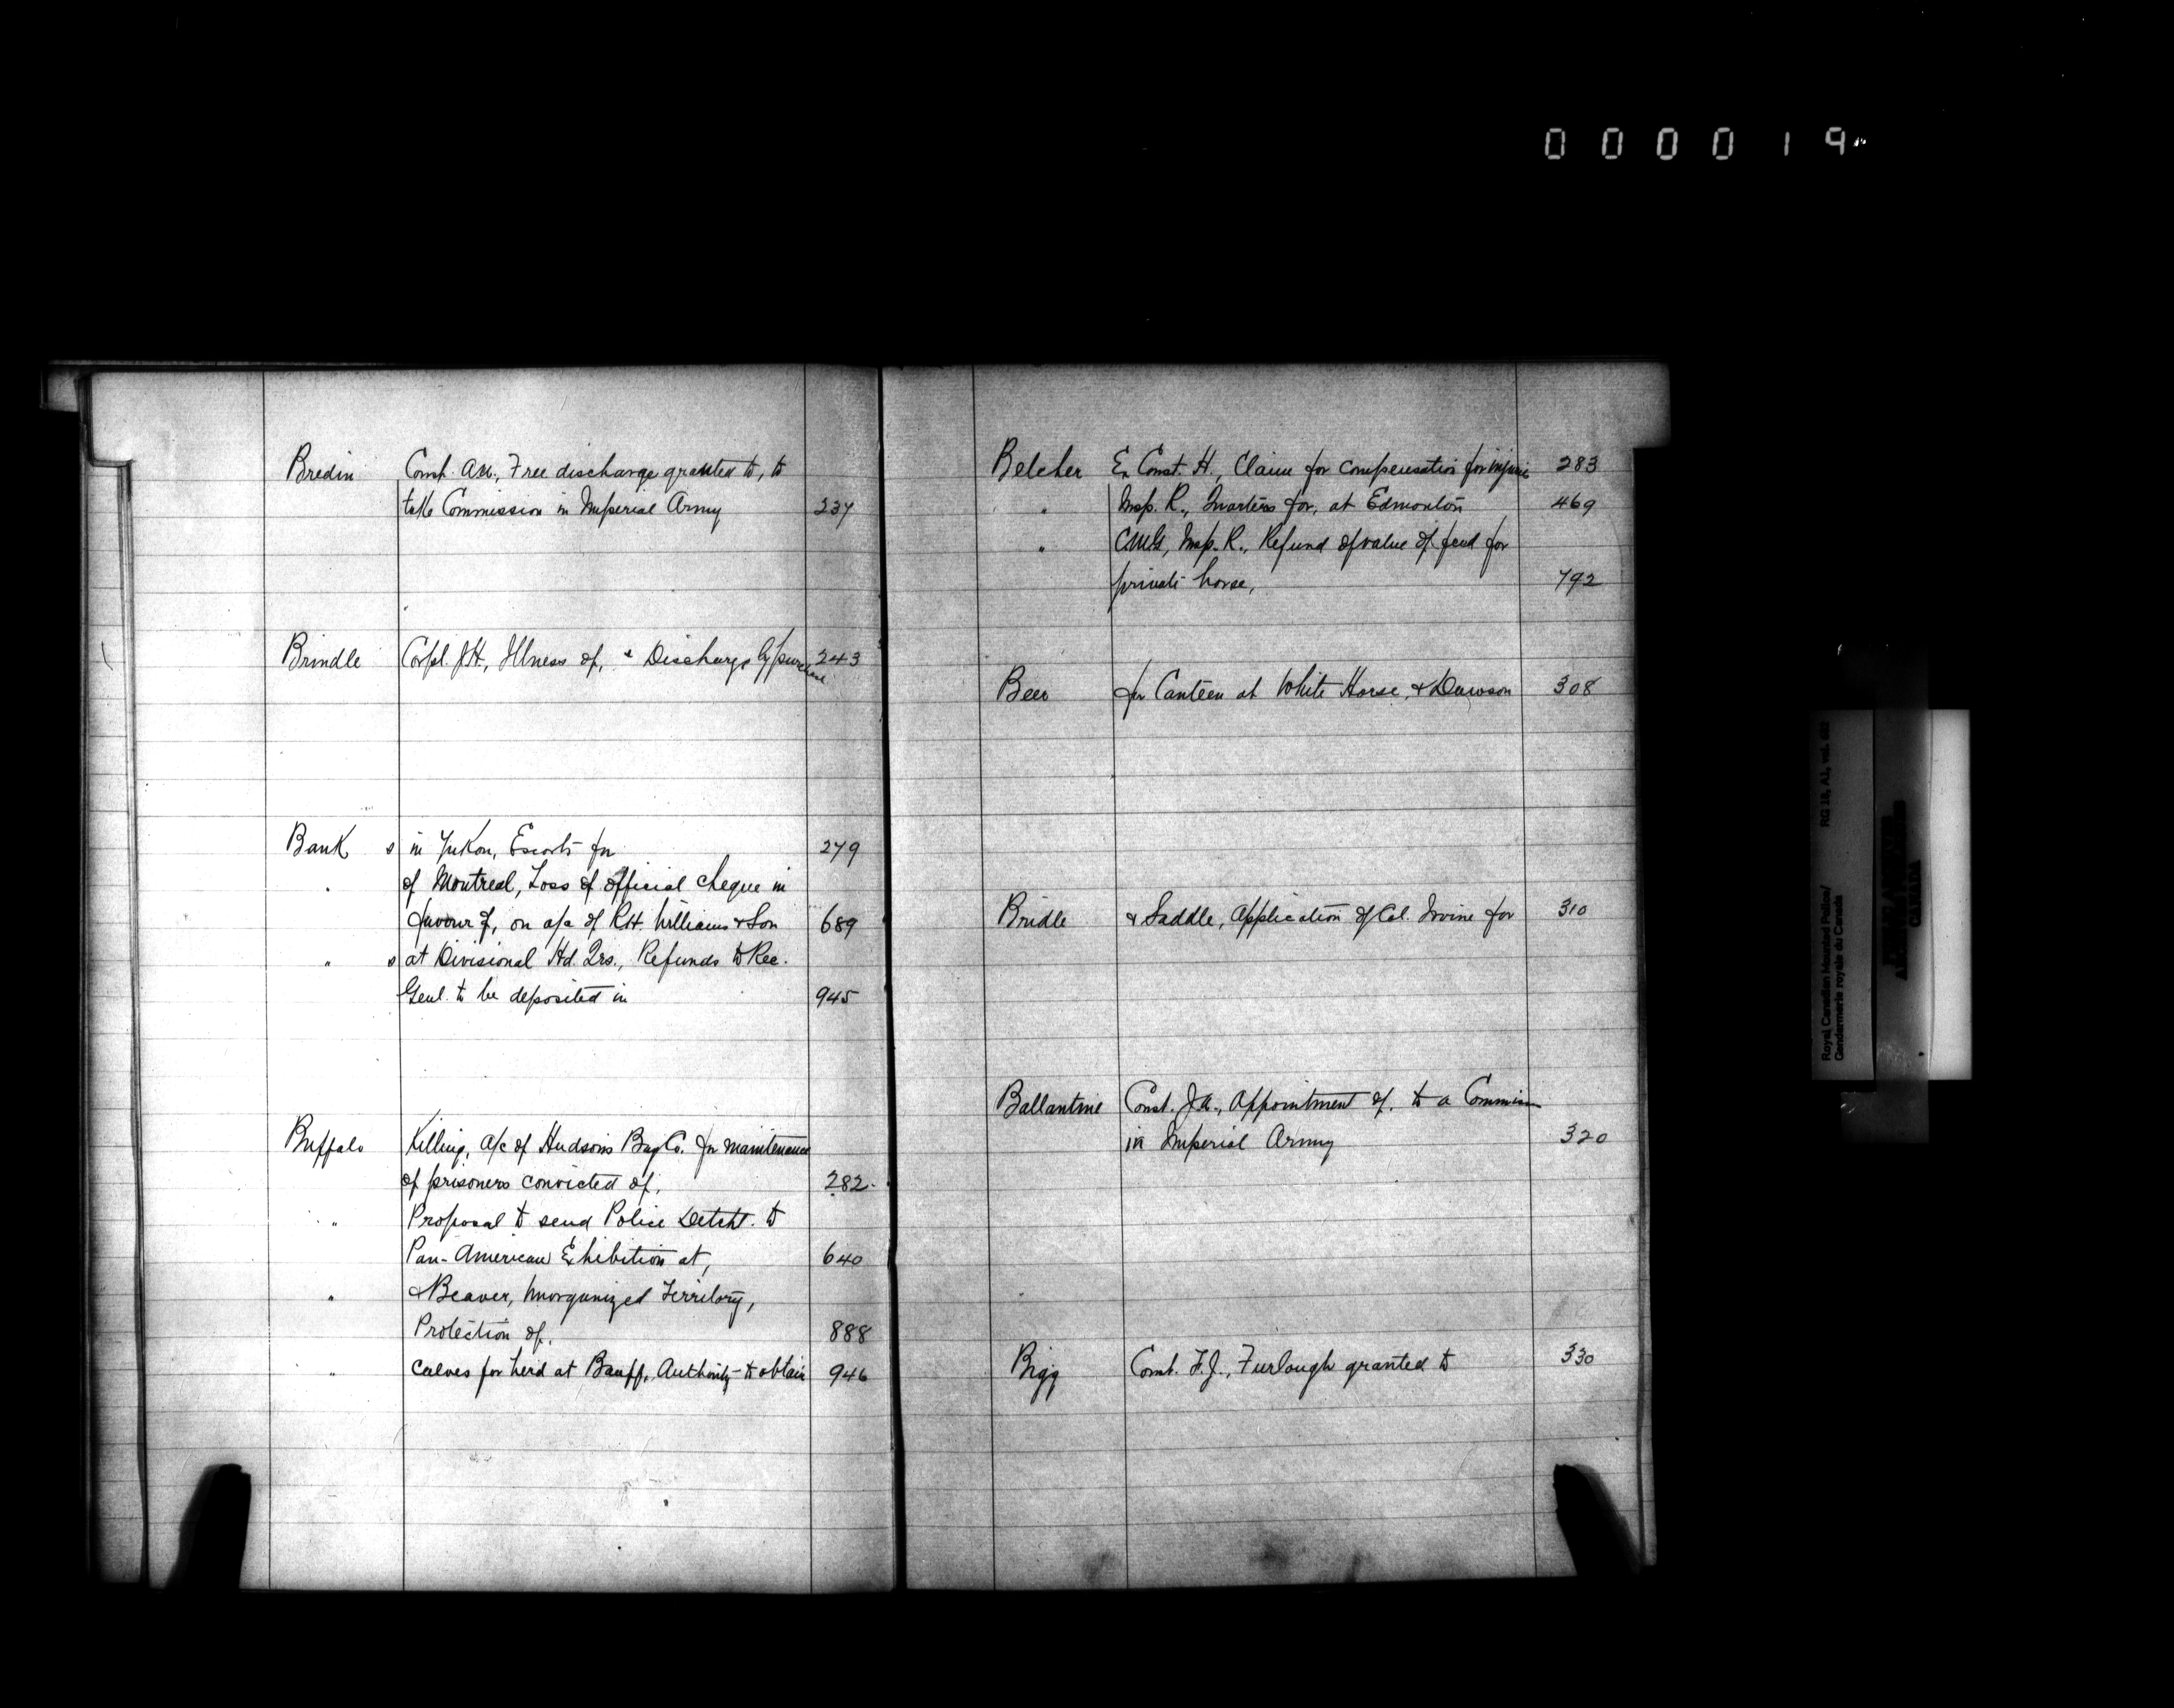 000019
Bredin Const. A.W., Free discharge granted to, to
take Commission in Imperial Army 237
Brindle Corpl. J.H., Illness of, & Discharge by purchase 243
Bank s in Yukon, Escorts for 279
" of Montreal, Loss of official cheque in
favour of, on a/c of R.H. Williams & Son 689
" s at Divisional Hd. Qrs., Refunds to Rec.
Genl. to be deposited in 945
Buffalo Killing, a/c of Hudson's Bay Co. for maintenance
of prisoners convicted of, 282
" Proposal to send Police Detcht. to
Pan-American Exhibition at, 640
" & Beaver, Unorganized Territory,
Protection of, 888
" calves for herd at Banff, Authority to obtain 946
Belcher Ex Const. H., Claim for compensation for injuries 283
" Insp. R., Quarters for, at Edmonton 469
" CMG, Insp. R., Refund of value of feed for
private horse, 792
Beer for Canteen at White Horse, & Dawson 308
Bridle & Saddle, Application of Col. Irvine for 310
Ballantine Const. J.A., Appointment of, to a Commission
in Imperial Army 320
Bigg Const. F.J., Furlough granted to 330
Royal Canadian Mounted Police/
Gendarmerie royale du Canada
RG 18, A1, vol.
CANADA